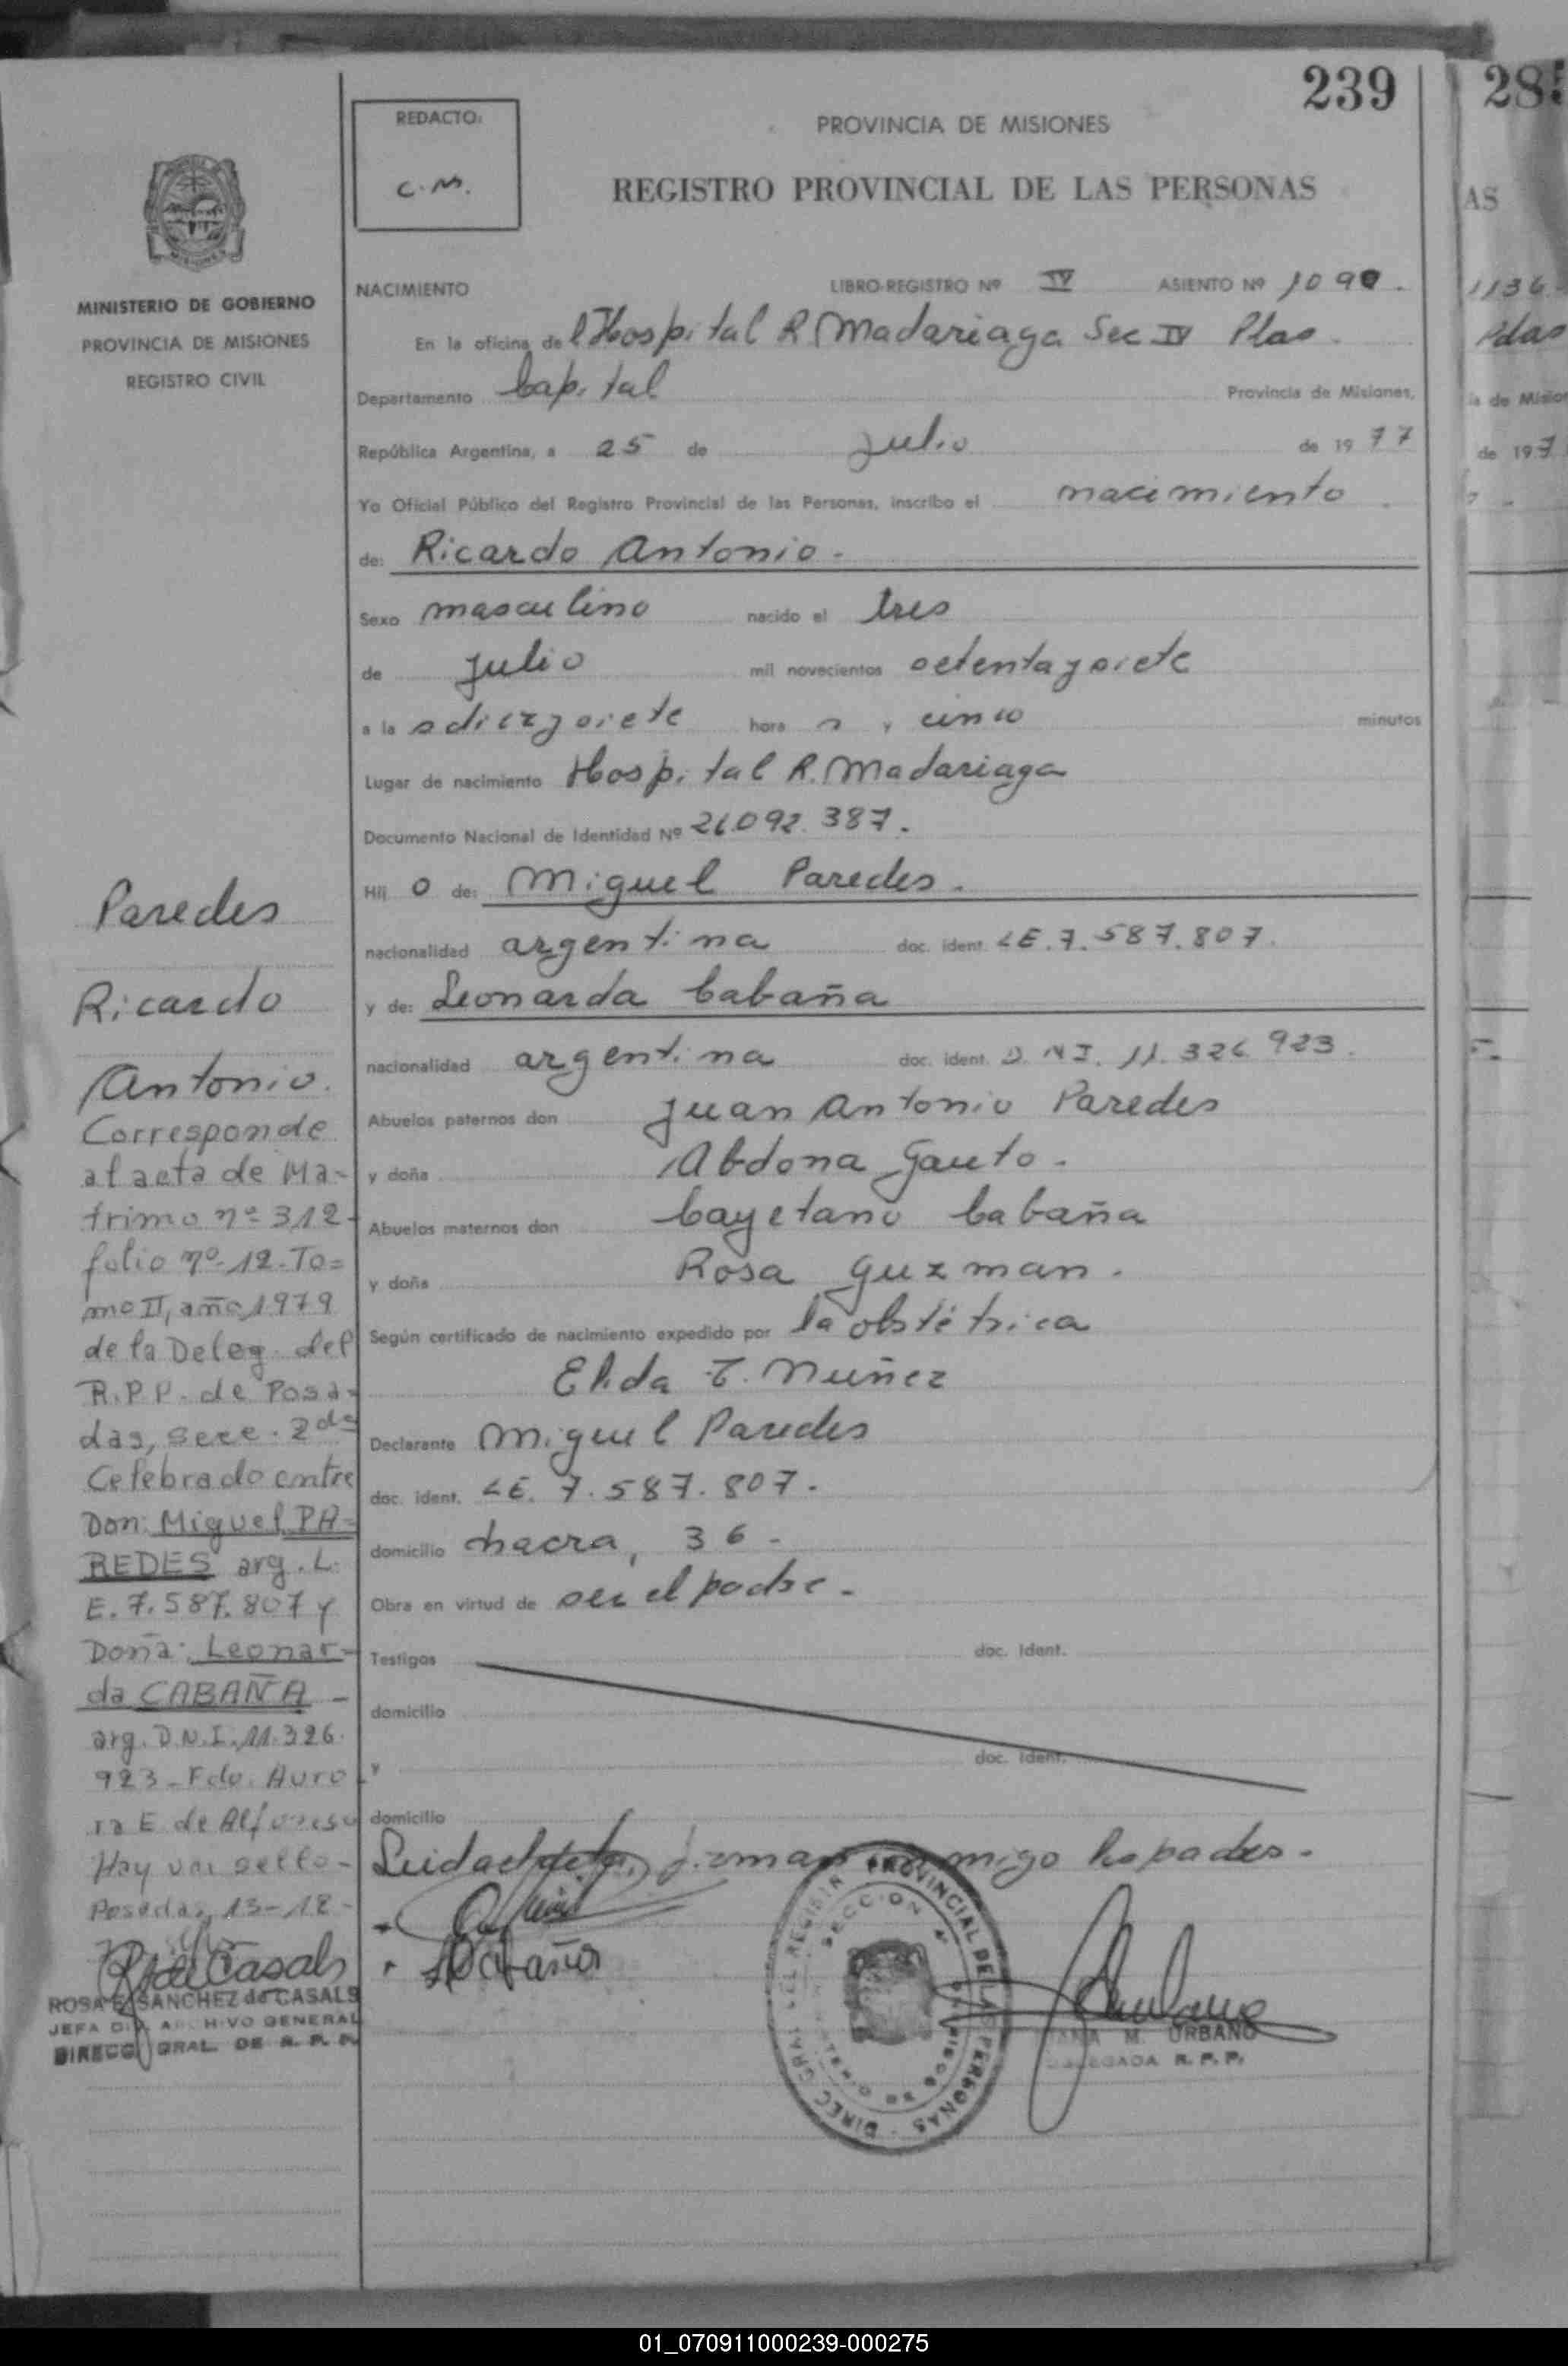 239
REDACTO:
C.M.
PROVINCIA DE MISIONES
REGISTRO PROVINCIAL DE LAS PERSONAS
MINISTERIO DE GOBIERNO
PROVINCIA DE MISIONES
REGISTRO CIVIL
NACIMIENTO LIBRO-REGISTRO Nº IV ASIENTO Nº 1090.
En la oficina del Hospital R. Madariaga Sec IV Pdas.
Departamento Capital Provincia de Misiones,
República Argentina, a 25 de julio de 1977
Yo Oficial Público del Registro Provincial de las Personas, inscribo el nacimiento
de: Ricardo Antonio.
Sexo masculino nacido el tres
de julio mil novecientos setentaysiete
a la s diezysiete hora s y cinco minutos
Lugar de nacimiento Hospital R. Madariaga
Documento Nacional de Identidad Nº 26.092.387.
Hij o de: Miguel Paredes.
nacionalidad argentina doc. ident. LE. 7.587.807.
y de: Leonarda Cabaña
nacionalidad argentina doc. ident. D.N.I. 11.326.923.
Abuelos paternos don Juan Antonio Paredes
y doña Abdona Gauto.
Abuelos maternos don Cayetano Cabaña
y doña Rosa Guzman.
Según certificado de nacimiento expedido por la obstétrica
Elida T. Nuñez
Declarante Miguel Paredes
doc. ident. LE. 7.587.807.
domicilio chacra, 36.
Obra en virtud de ser el padre.
Testigos doc. Ident.
domicilio
y doc. Ident.
domicilio
Leida el acta, firman conmigo los padres.
LCabaña
SECCION 4ª
DIREC GRAL DEL REGISTR PROVINCIAL DE LAS PERSONAS
M. URBANO
DELEGADA R. P. P.
Paredes
Ricardo
Antonio.
Corresponde
al acta de Ma-
trimo nº 312-
folio nº 12-To=
mo II, año 1979
de la Deleg. del
R.P.P. de Posa-
das, secc. 2da
Celebrado entre
Don: Miguel PA-
REDES arg. L.
E. 7.587.807 y
Doña: Leonar-
da CABAÑA -
arg. D.N.I. 11.326.
923-Fdo. Auro
ra E de Alfonso
Hay un sello-
Posadas, 13-12-
R de Casals
ROSA E. SANCHEZ de CASALS
JEFA DIV. ARCHIVO GENERAL
DIRECC. GRAL. DE R. P. P.
28
AS
1136
Pdas
ia de Mision
de 197
01_070911000239-000275